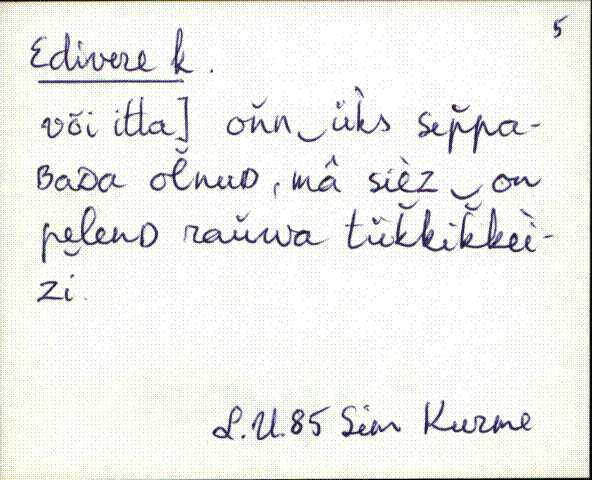 5
Edivere k.
või itta] oňn‿ük̀s sep̆pa-
ʙaᴅa ol̆nuᴅ, mâ sièz‿on
pel̆enᴅ raŭwa tük̆kik̆keì-
zi.
L.U.85 Sim Kurme